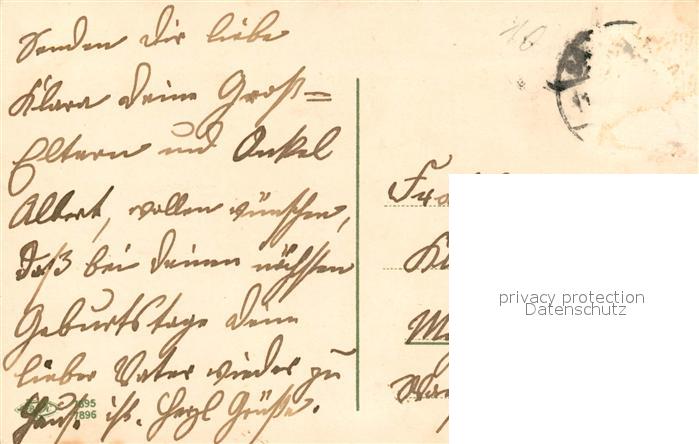 Senden dir liebe
Klara deine Groß=
Eltern und Onkel
Albert, wollen wünschen,
daß bei deinem nächsten
Geburtstage dein
lieber Vater wieder zu
Haus. ist. Herzl Grüße.
7895
7896
privacy protection
Datenschutz